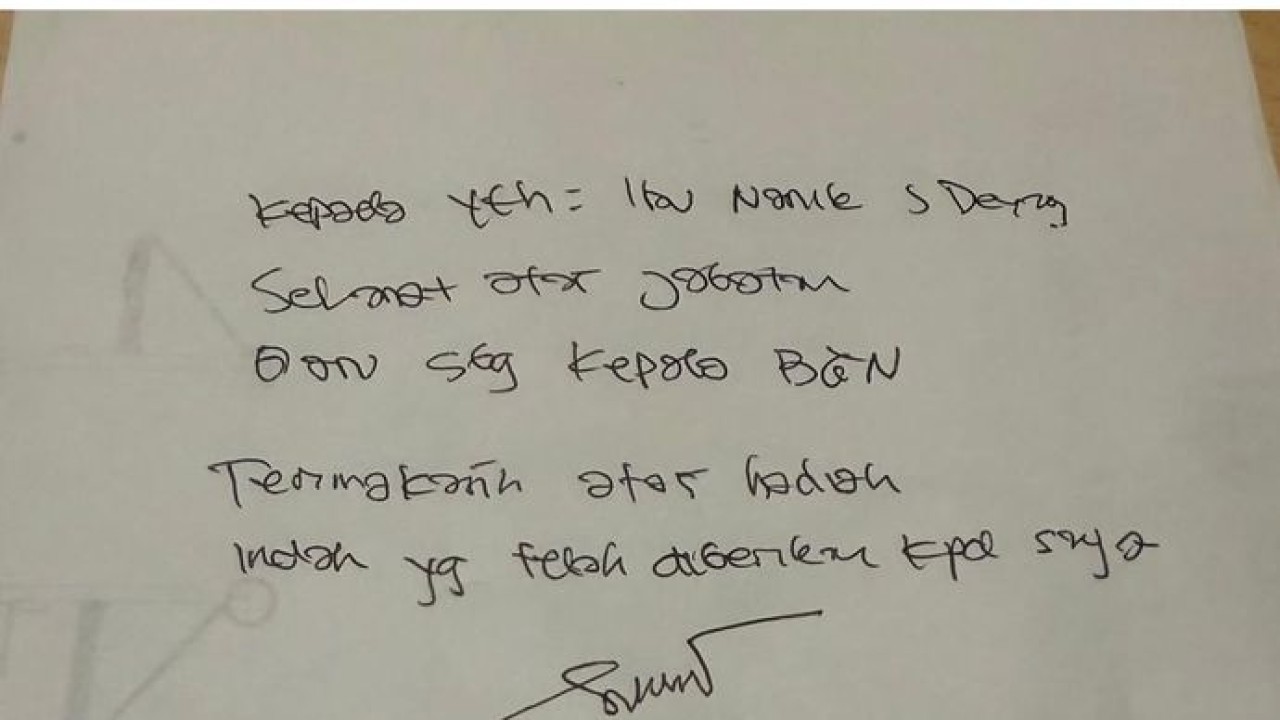 Kepada Yth = Ibu Nanik S Deyng
Selamat atas jabatan
Dan sbg Kepala BGN
Terimakasih atas hadiah
Indah yg telah diberikan kpd saya